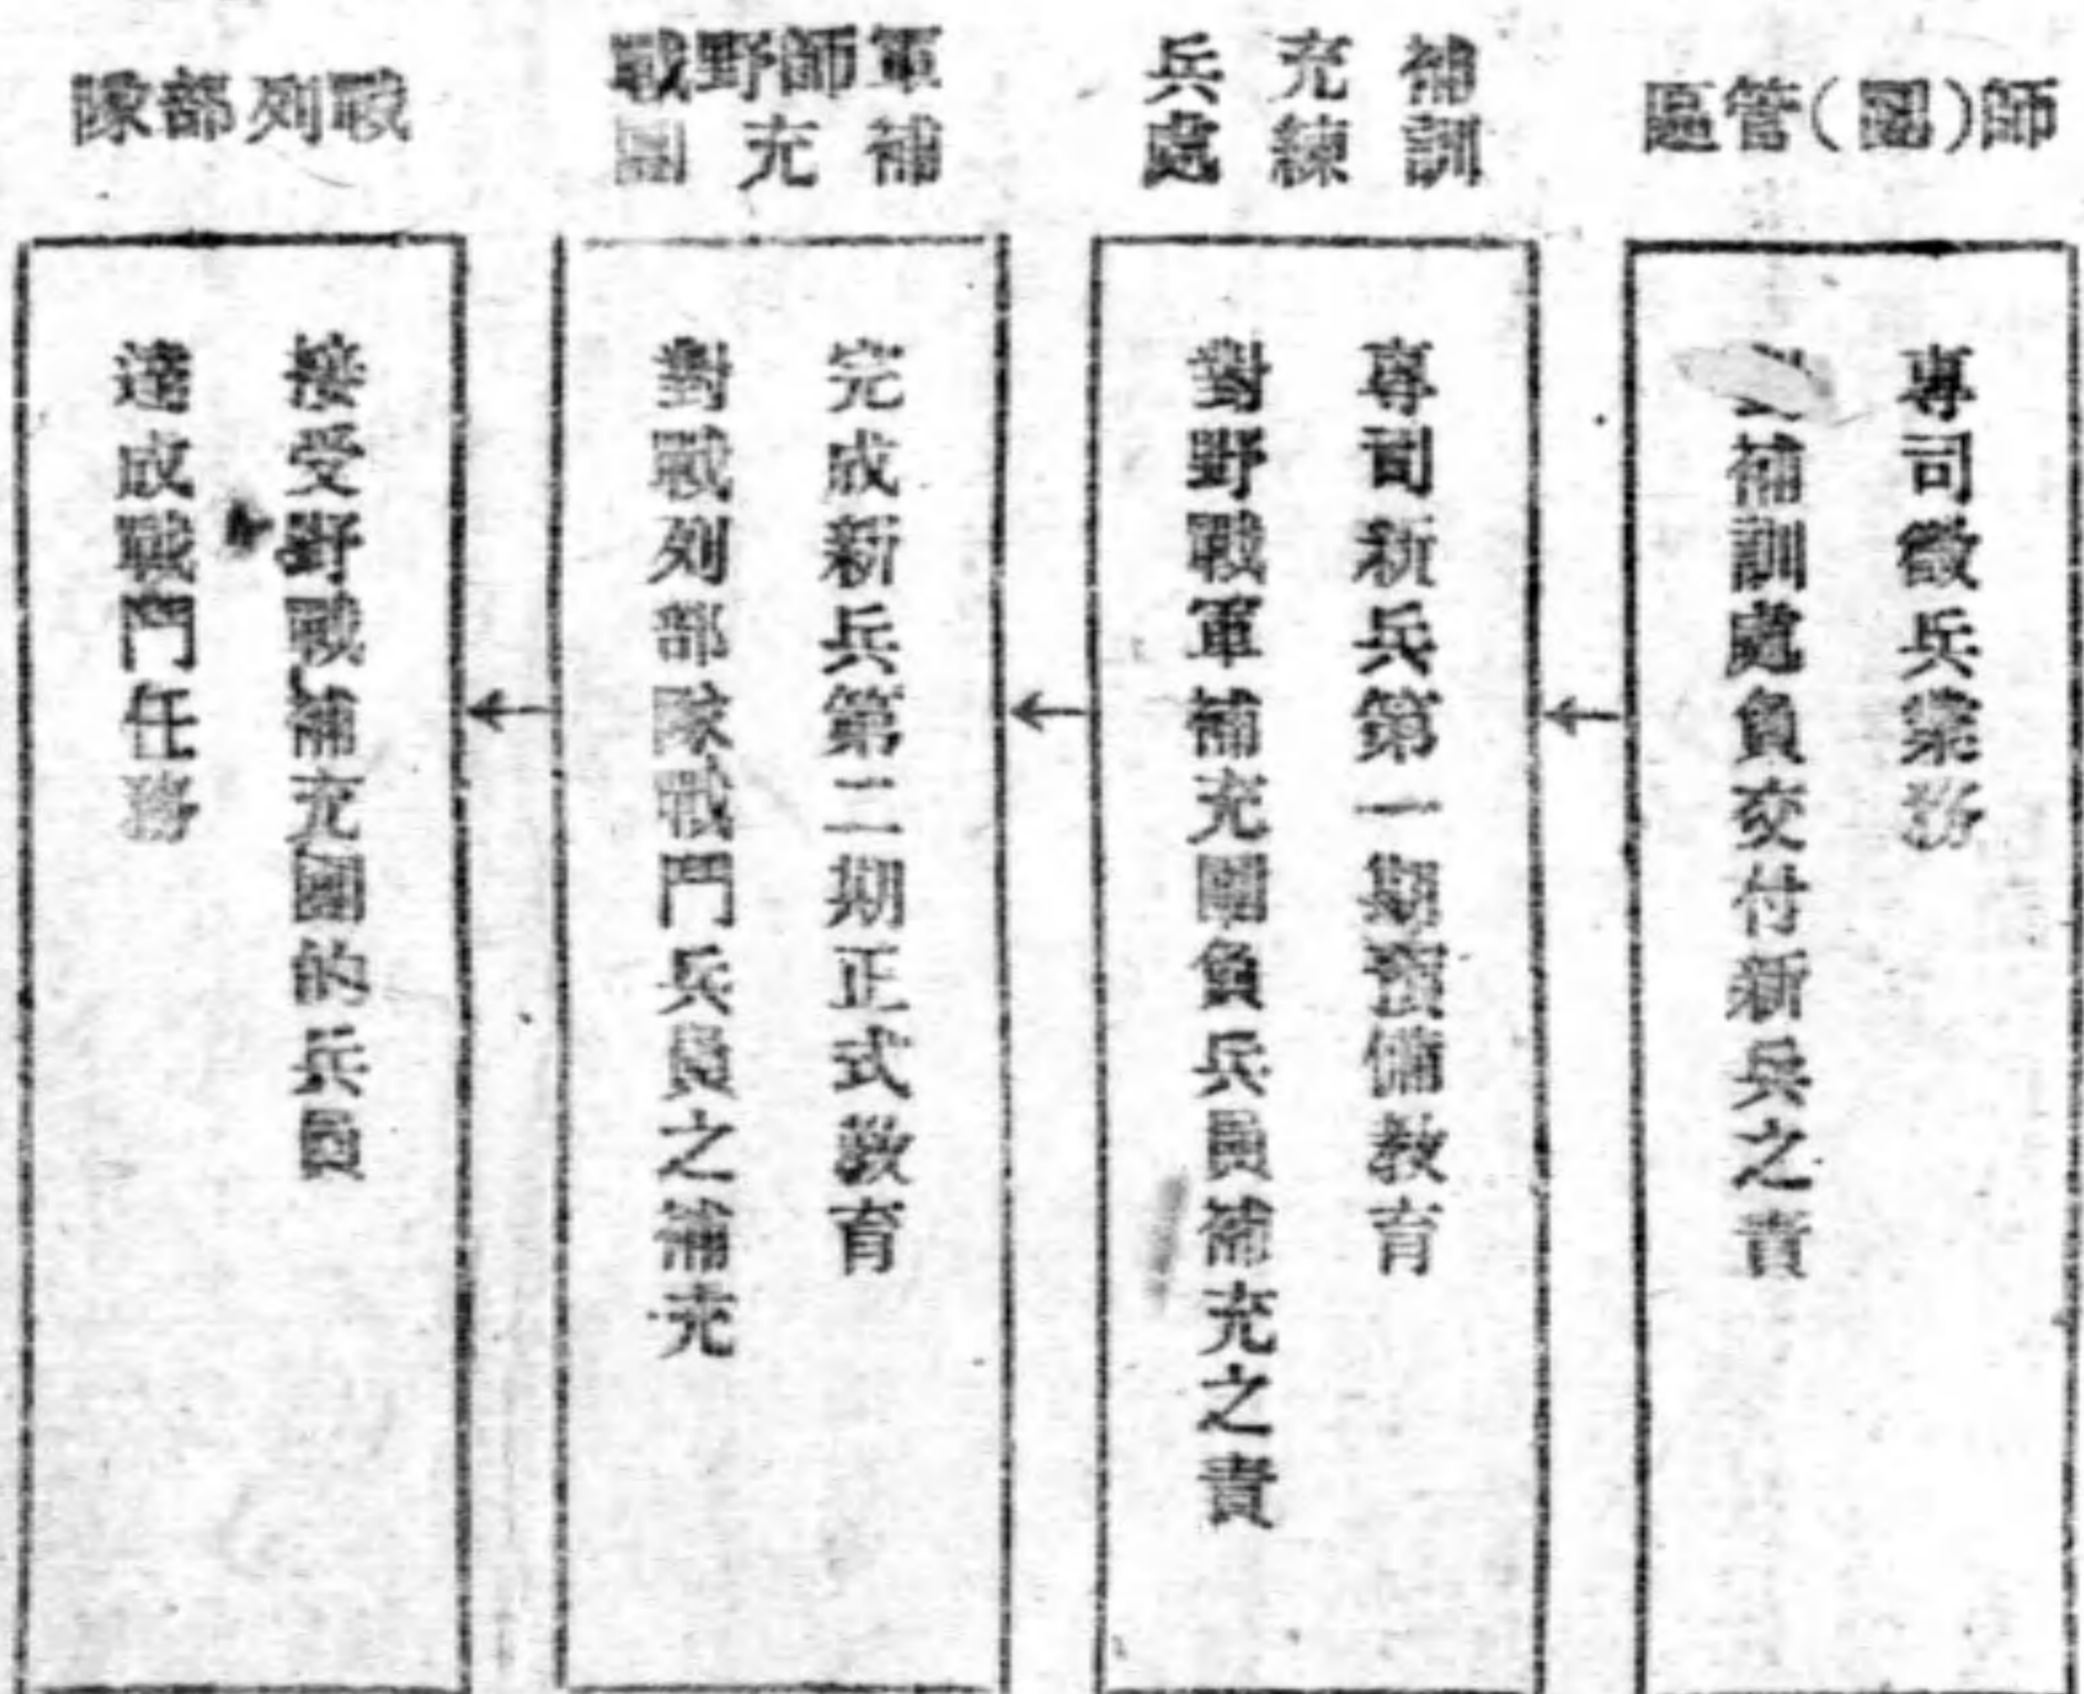 師（團）管區
專司徵兵業務
補訓處負交付新兵之責
補充兵
訓練處
專司新兵第一期預備教育
對野戰軍補充團負兵員補充之責
軍師野戰
補充團
完成新兵第二期正式教育
對戰列部隊戰鬥兵員之補充
戰列部隊
接受野戰補充團的兵員
達成戰鬥任務